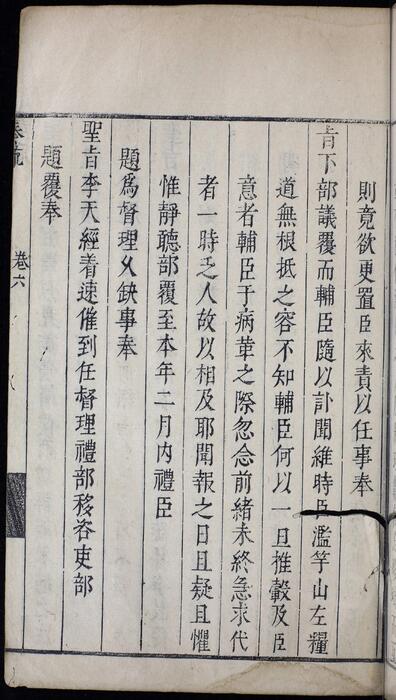 則竟欲更置臣來責以任事奉
旨下部議覆而輔臣隨以訃聞維時臣濫竽山左糧
道無根抵之容不知輔臣何以一旦推轂及臣
意者輔臣于病革之際忽念前緒未終急求代
者一時乏人故以相及耶聞報之日且疑且懼
惟靜聽部覆至本年二月內禮臣
題爲督理乆缺事奉
聖旨李天經着速催到任督理禮部移咨吏部
題覆奉
奏疏 卷六